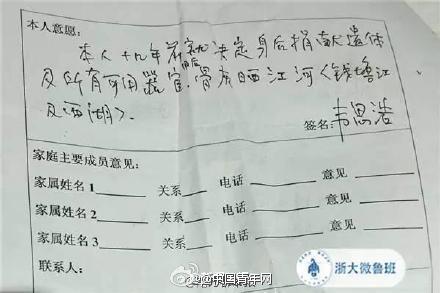 本人意愿：
本人十九年前就决定身后捐献遗体
及所有可用器官.骨灰洒江河〈钱塘江
及西湖〉.
签名：韦思浩
家庭主要成员意见：
家属姓名1 关系 电话 意见
家属姓名2 关系 电话 意见
家属姓名3 关系 电话 意见
联系人：
浙大微鲁班
@中国青年网